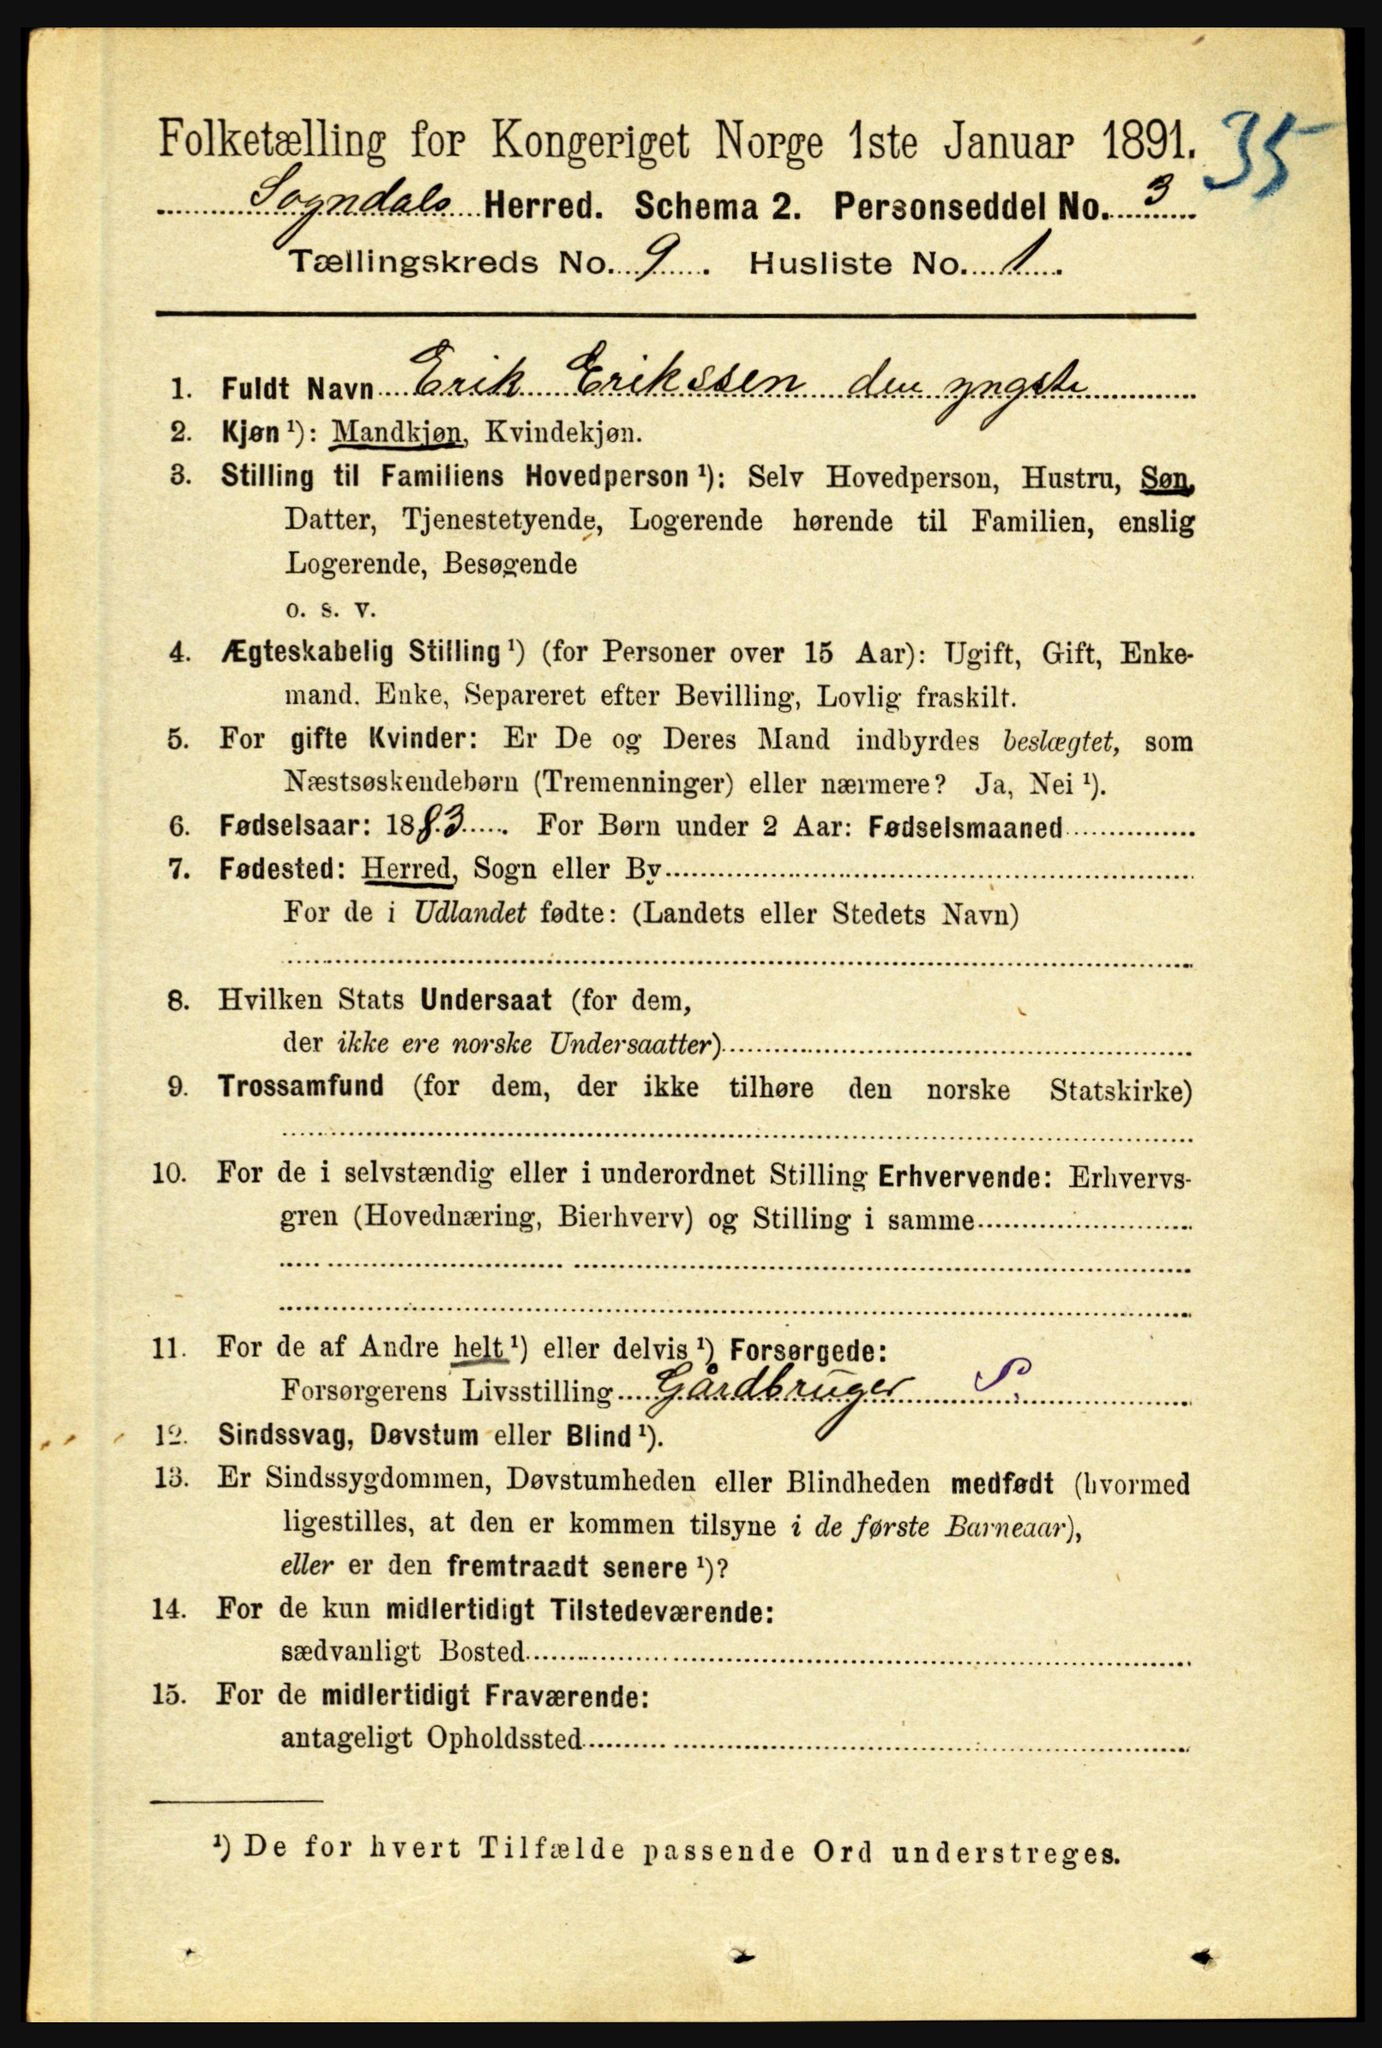 Folketælling for Kongeriget Norge 1ste Januar 1891. 35
Sogndals Herred. Schema 2. Personseddel No. 3
Tællingskreds No. 9. Husliste No. 1.
1. Fuldt Navn Erik Erikssen den yngste
2. Kjøn ¹): Mandkjøn, Kvindekjøn.
3. Stilling til Familiens Hovedperson ¹): Selv Hovedperson, Hustru, Søn,
Datter, Tjenestetyende, Logerende hørende til Familien, enslig
Logerende, Besøgende
o. s. v.
4. Ægteskabelig Stilling ¹) (for Personer over 15 Aar): Ugift, Gift, Enke-
mand. Enke, Separeret efter Bevilling, Lovlig fraskilt.
5. For gifte Kvinder: Er De og Deres Mand indbyrdes beslægtet, som
Næstsøskendebørn (Tremenninger) eller nærmere? Ja, Nei ¹).
6. Fødselsaar: 1883. For Børn under 2 Aar: Fødselsmaaned
7. Fødested: Herred, Sogn eller By
For de i Udlandet fødte: (Landets eller Stedets Navn)
8. Hvilken Stats Undersaat (for dem,
der ikke ere norske Undersaatter)
9. Trossamfund (for dem, der ikke tilhøre den norske Statskirke)
10. For de i selvstændig eller i underordnet Stilling Erhvervende: Erhvervs-
gren (Hovednæring, Bierhverv) og Stilling i samme
11. For de af Andre helt ¹) eller delvis ¹) Forsørgede:
Forsørgerens Livsstilling Gårdbruger S.
12. Sindssvag, Døvstum eller Blind ¹).
13. Er Sindssygdommen, Døvstumheden eller Blindheden medfødt (hvormed
ligestilles, at den er kommen tilsyne i de første Barneaar),
eller er den fremtraadt senere ¹)?
14. For de kun midlertidigt Tilstedeværende:
sædvanligt Bosted
15. For de midlertidigt Fraværende:
antageligt Opholdssted
¹) De for hvert Tilfælde passende Ord understreges.